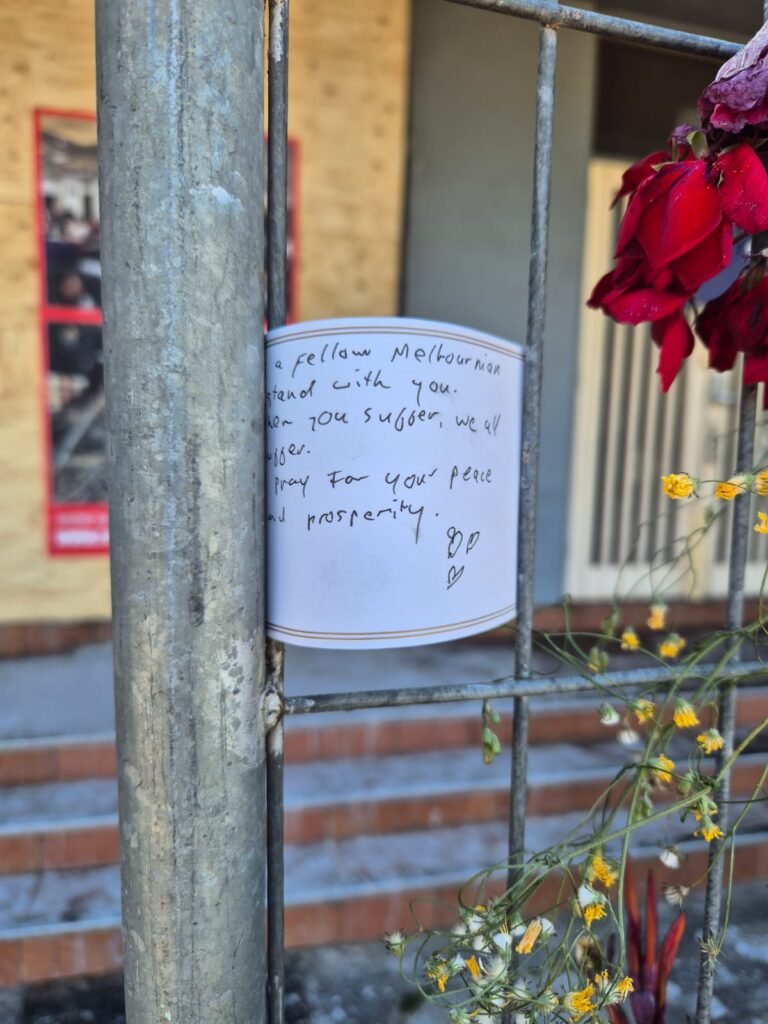 a fellow Melbournian
stand with you.
hen you suffer, we all
uffer.
pray For your peace
nd prosperity.